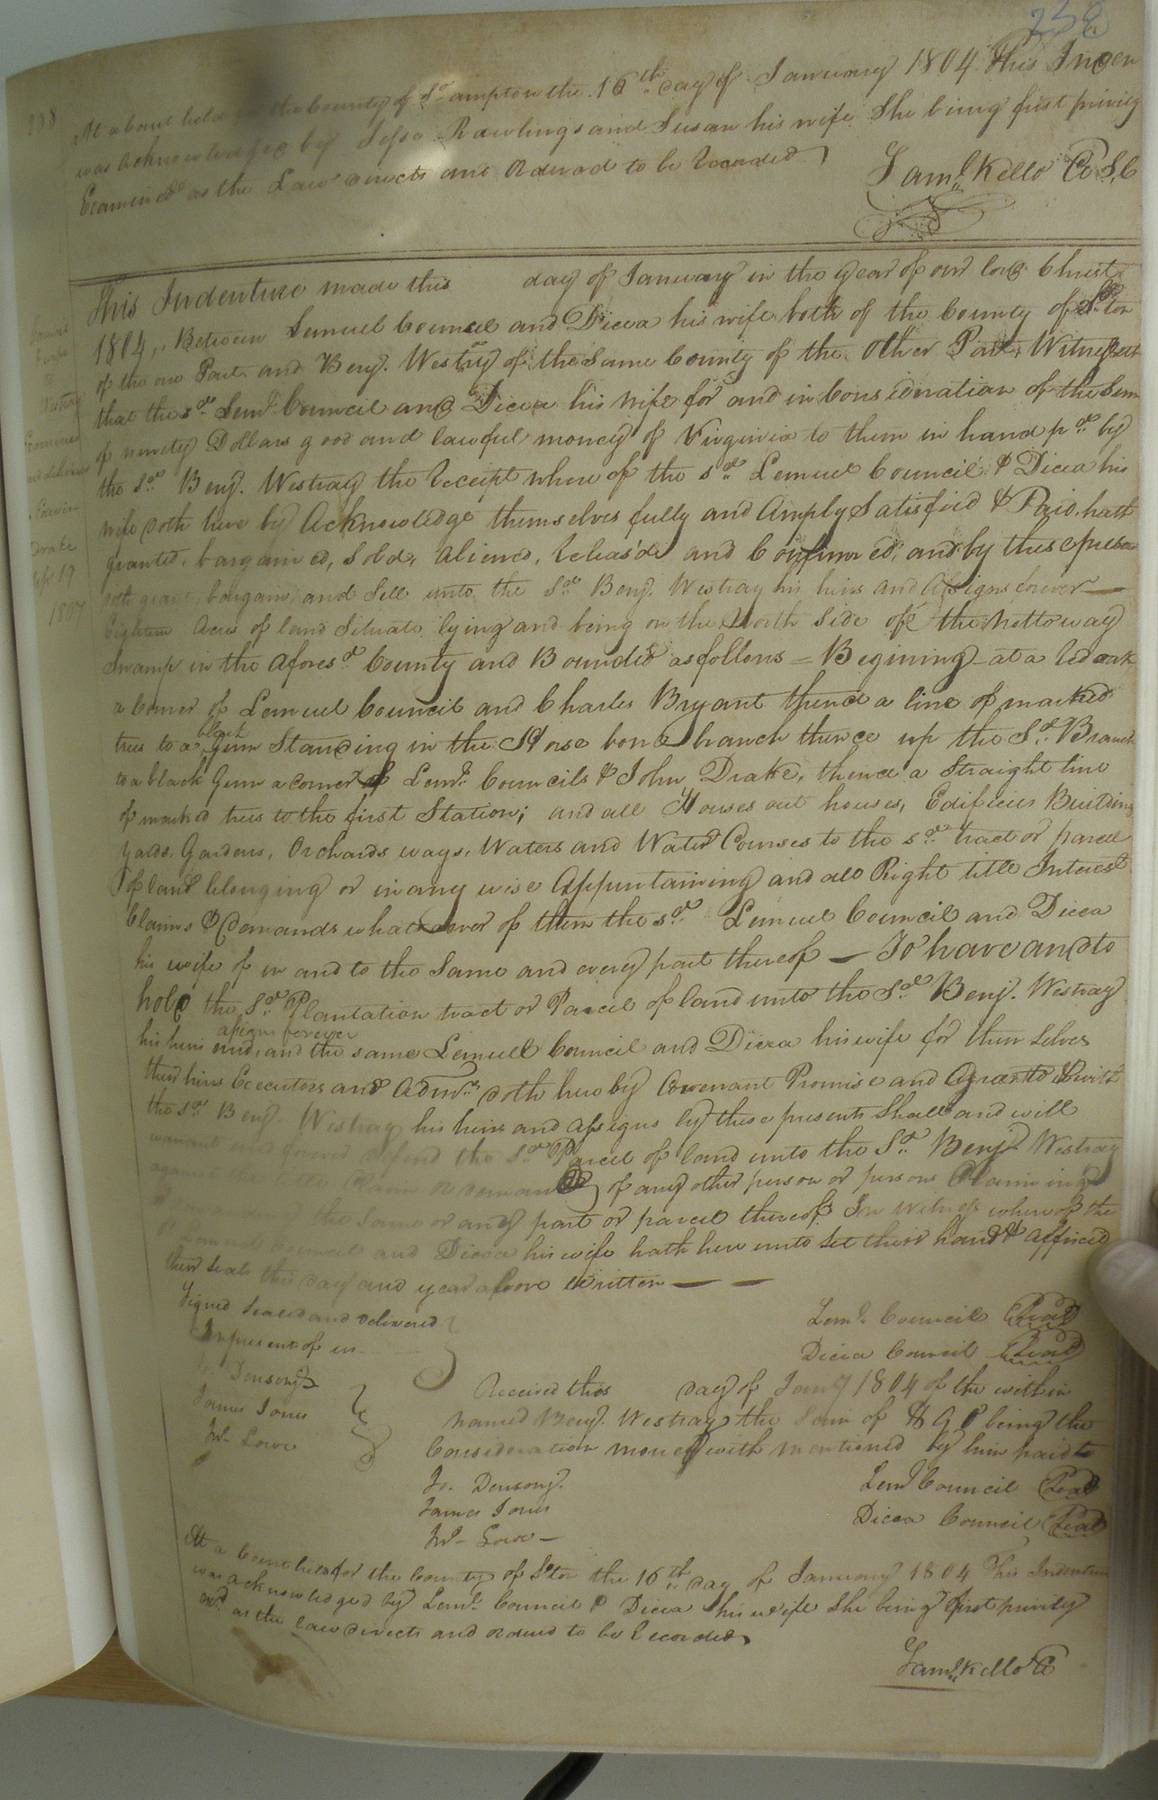 238
238
At a Court held for the County of So ampton the 16th day of January 1804 This Inden
was acknowledged by Jesse Rawlings and Susan his wife She being first privily
Examined as the Law directs and Ordered to be Recorded
Saml Kello Cl S.C
This Indenture made this day of January in the year of our lord Christ
1804, Between Lemuel Council and Dicea his wife both of the County of So ton
of the one Part and Benj. Westray of the same County of the Other Part, Witnesseth
that the sd Leml Council and Dicea his wife for and in Consideration of the Sum
of ninety Dollars good and lawful money of Virginia to them in hand pd by
the sd Benj. Westray the Receipt where of the sd Lemuel Council & Dicea his
wife doth here by Acknowledge themselves fully and Amply Satisfied & Paid, hath
granted, bargained, Sold, Aliened, Releas'd and Confirmed, and by these presents
doth grant, bargain, and Sell unto the Sd Benj. Westray his heirs and Assigns forever
Eighteen Acres of land Situate lying and being on the North Side of the Nottoway
Swamp in the Aforesd County and Bounded as follows = Begining at a Red oak
a Corner of Lemuel Council and Charles Bryant thence a line of marked
trees to a black Gum Standing in the Horse bone branch thence up the Sd Branch
to a black Gum a corner of Leml Councils & John Drake, thence a Straight line
of marked trees to the first Station; and all Houses out houses, Edifices Building
yards, Gardens, Orchards ways, Waters and Water Courses to the sd tract or parcel
of land belonging or in any wise Appertaining and all Right title Interest
Claims & Demands whatsoever of them the sd Lemuel Council and Dicea
his wife of in and to the Same and every part thereof — To have and to
hold the Sd Plantation tract or Parcel of land unto the Sd Benj. Westray
his heirs and assigns forever and the same Lemuel Council and Dicea his wife for them selves
their heirs Executors and Admrs doth here by Covenant Promise and Agree to & with
the sd Benj Westray his heirs and assigns by these presents Shall and will
warrant and forever defend the sd Parcel of land unto the Sd Benj Westray
against the title Claim or demand of any other person or persons Claiming
or demanding the Same or any part or parcel thereof In witness whereof the
sd Lemuel Council and Dicea his wife hath here unto Set their hand & affixed
their Seals the day and year above written — —
Signed Sealed and delivered
In present of us
Jo. Denson
James Jones
Lowe
Leml Council Seal
Dicea Council Seal
Received this day of Jany 1804 of the within
named Benj. Westray the Sum of being the
Consideration money with mentioned by him paid to
Jo. Denson
James Jones
Lowe
Leml Council Seal
Dicea Council Seal
At a Court held for the County of So ton the 16th day of January 1804 This Indenture
was acknowledged by Leml Council & Dicea his wife She being first privily
as the law directs and ordered to be Recorded
Saml Kello Cl
Westray
Examined
and delivered
Drake
19
1807